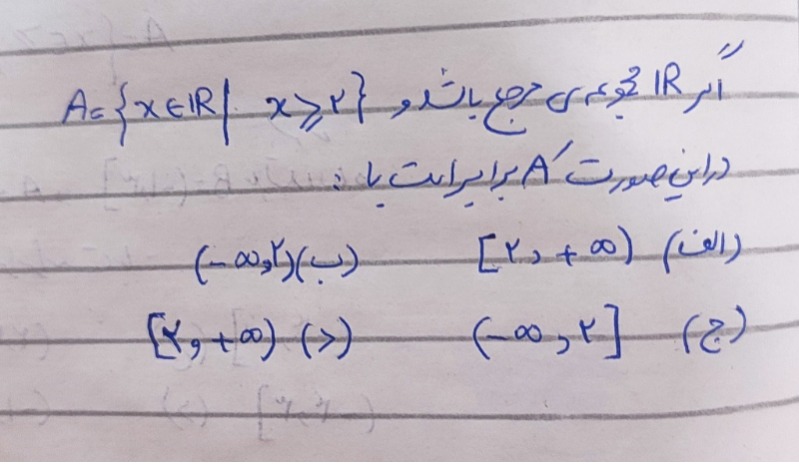 اگر IR مجموعه ی مرجع باشد و A={x∈IR| x≥۲}
در این صورت A′ برابر است با :
الف) [۲, +∞) ب) (-∞, ۲)
ج) (-∞, ۲] د) [۲, +∞)